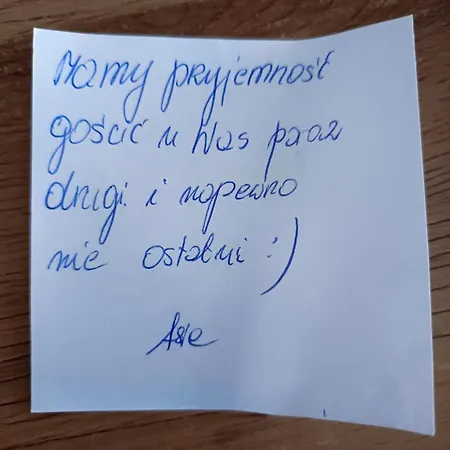 Mamy pryjemność
gościć u Was po raz
drugi i napewno
nie ostatni :)